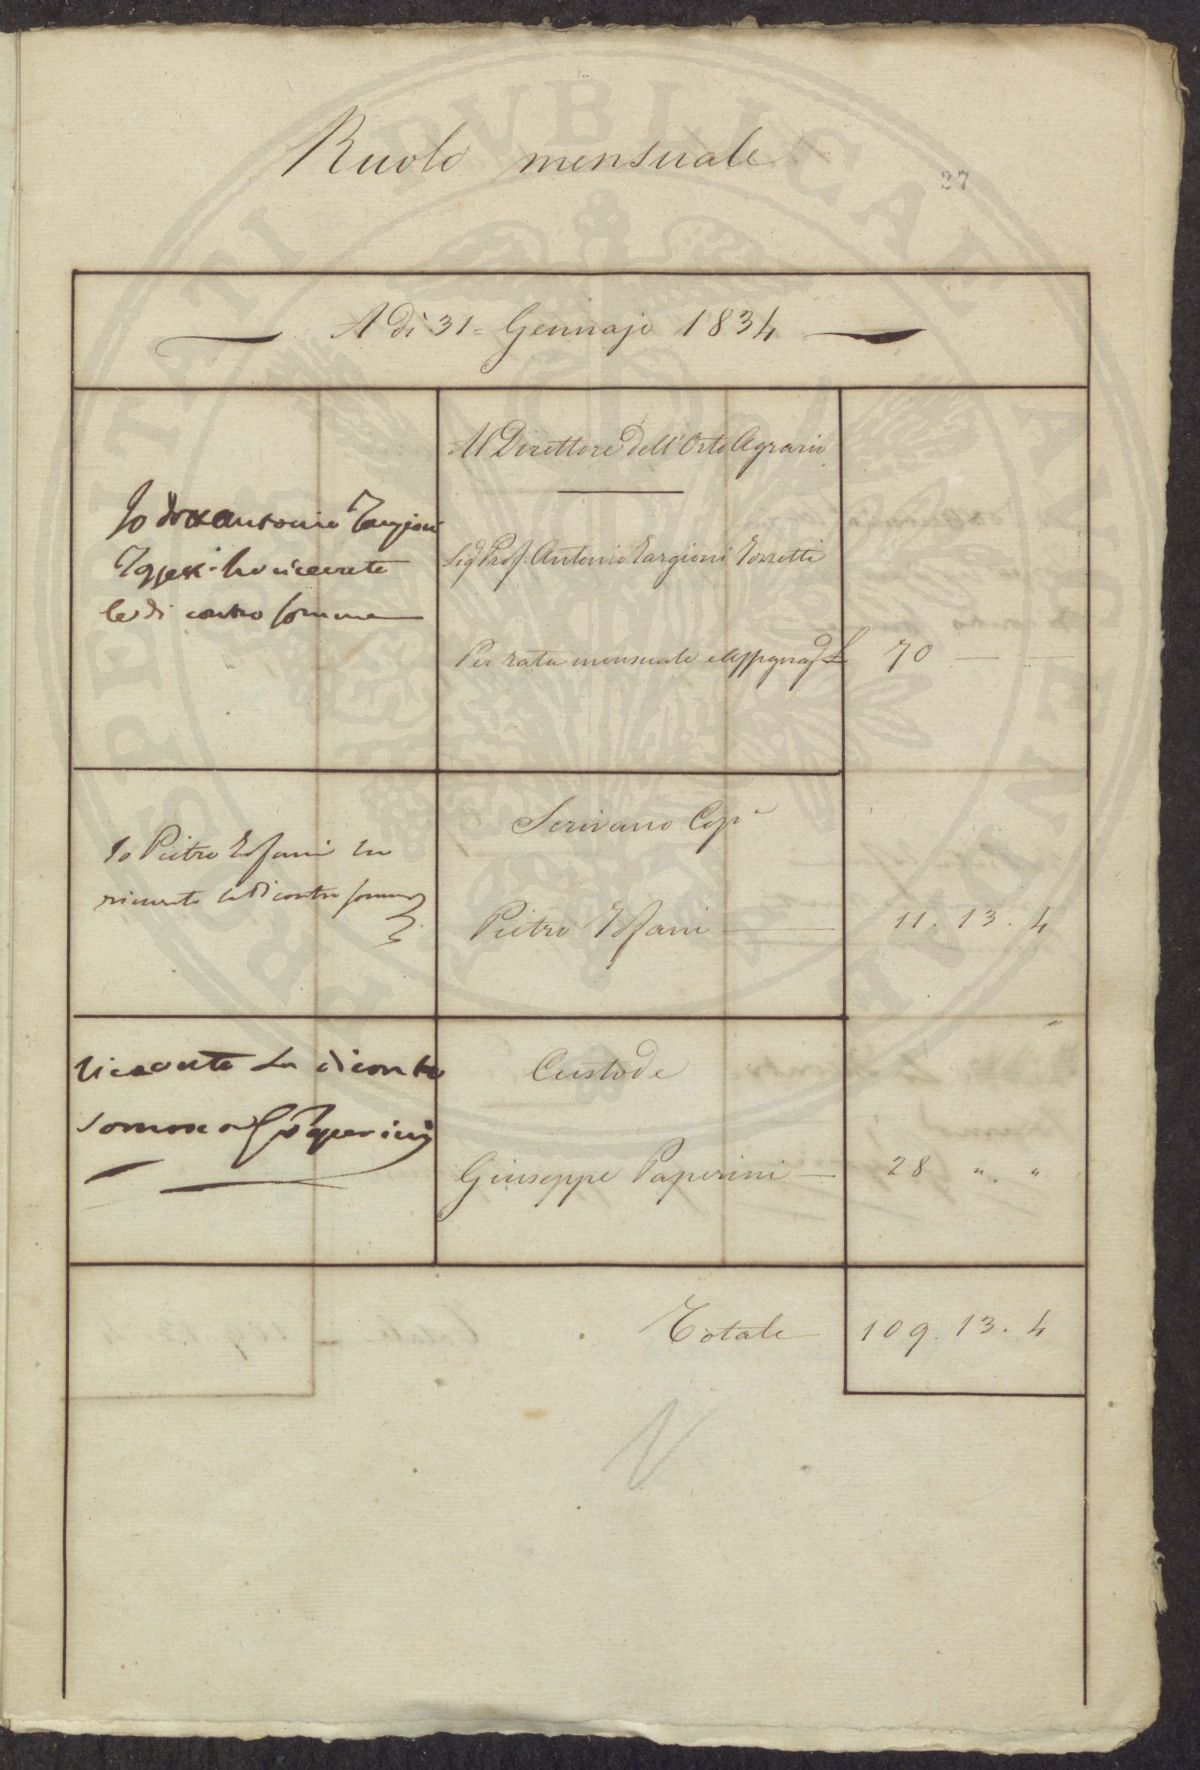 Ruolo mensuale
27
A dì 31 = Gennajo 1834
Al Direttore dell'Orto Agrario
Io Antonio Targioni
Tozzetti ho ricevuto
la di contro somma
Sig. Prof. Antonio Targioni Tozzetti
Per rata mensuale £ 70
Scrivano Cop.
Io Pietro Tofani ho
ricevuto la di contro somma
Pietro Tofani 11. 13. 4
Custode
Ricevuto La di contro
somma Paperini
Giuseppe Paperini 28 " "
Totale 109. 13. 4
PROSPERITATI PVBLICAE AVGENDAE